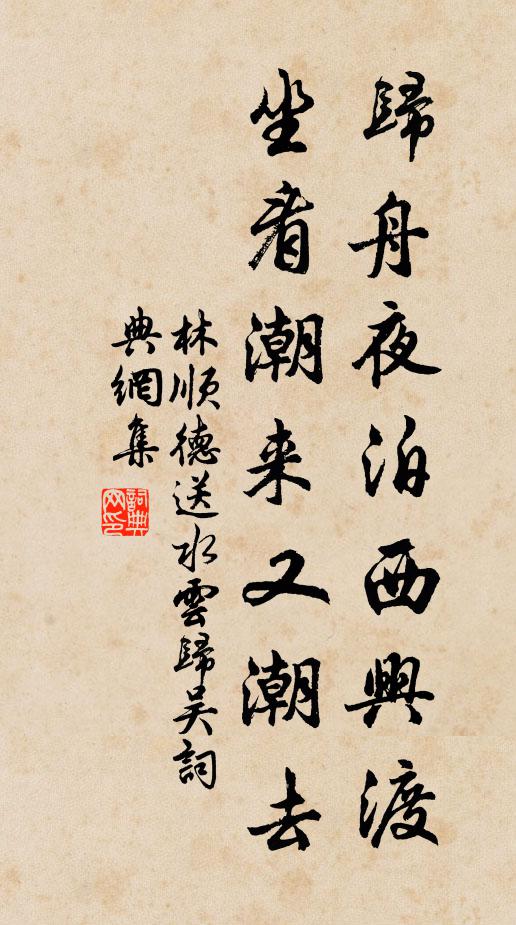 歸舟夜泊西興渡
坐看潮来又潮去
林順德送水雲歸吴詞
典網集
詞典网印